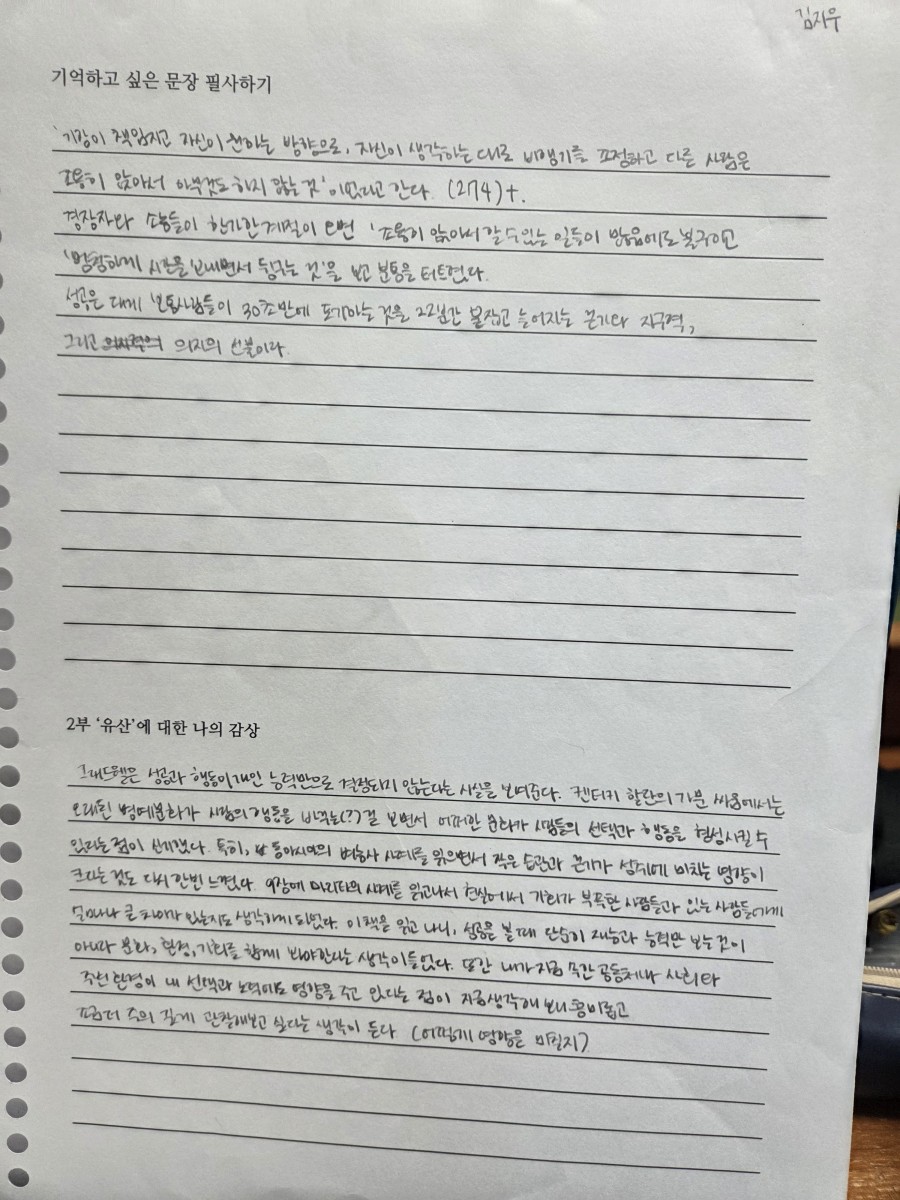 김지우
기억하고 싶은 문장 필사하기
'기장이 책임지고 자신이 원하는 방향으로, 자신이 생각하는 대로 비행기를 조정하고 다른 사람은
조용히 앉아서 아무것도 하지 않는 것'이었다고 한다. (274)+.
경장자와 소농들이 한가한 계절이 오면 '조용히 앉아서 할 수 있는 일들이 많음에도 불구하고
'멍청하게 시간을 보내면서 뒹구는 것'을 보고 분통을 터트렸다.
성공은 대게 보통사람들이 30초만에 포기하는 것을 22분간 붙잡고 늘어지는 끈기와 지구력,
그리고 의지의 선물이다.
2부 '유산'에 대한 나의 감상
그래드웰은 성공과 행동이 개인 능력만으로 결정되지 않는다는 사실을 보여준다. 켄터키 할란의 가문 싸움에서는
오래된 명예문화가 사람의 행동을 바꾸는(?)걸 보면서 어떠한 문화가 사람들의 선택과 행동을 형성시킬 수
있다는 점이 신기했다. 특히, 동아시아의 벼농사 사례를 읽으면서 작은 습관과 끈기가 성취에 미치는 영향이
크다는 것도 다시 한번 느꼈다. 9장에 마리타의 사례를 읽고나서 현실에서 기회가 부족한 사람들과 있는 사람들에게
얼마나 큰 차이가 있는지도 생각하게 되었다. 이책을 읽고 나니, 성공을 볼 때 단순히 재능과 능력만 보는것이
아니라 문화, 환경, 기회를 함께 봐야한다는 생각이 들었다. 또한 내가 지금 속한 공동체나 사회와
주변환경이 내 선택과 노력에도 영향을 주고 있다는 점이 지금생각해 보니 흥미롭고
조금더 주의 깊게 관찰해보고 싶다는 생각이 든다. (어떻게 영향을 미칠지?)